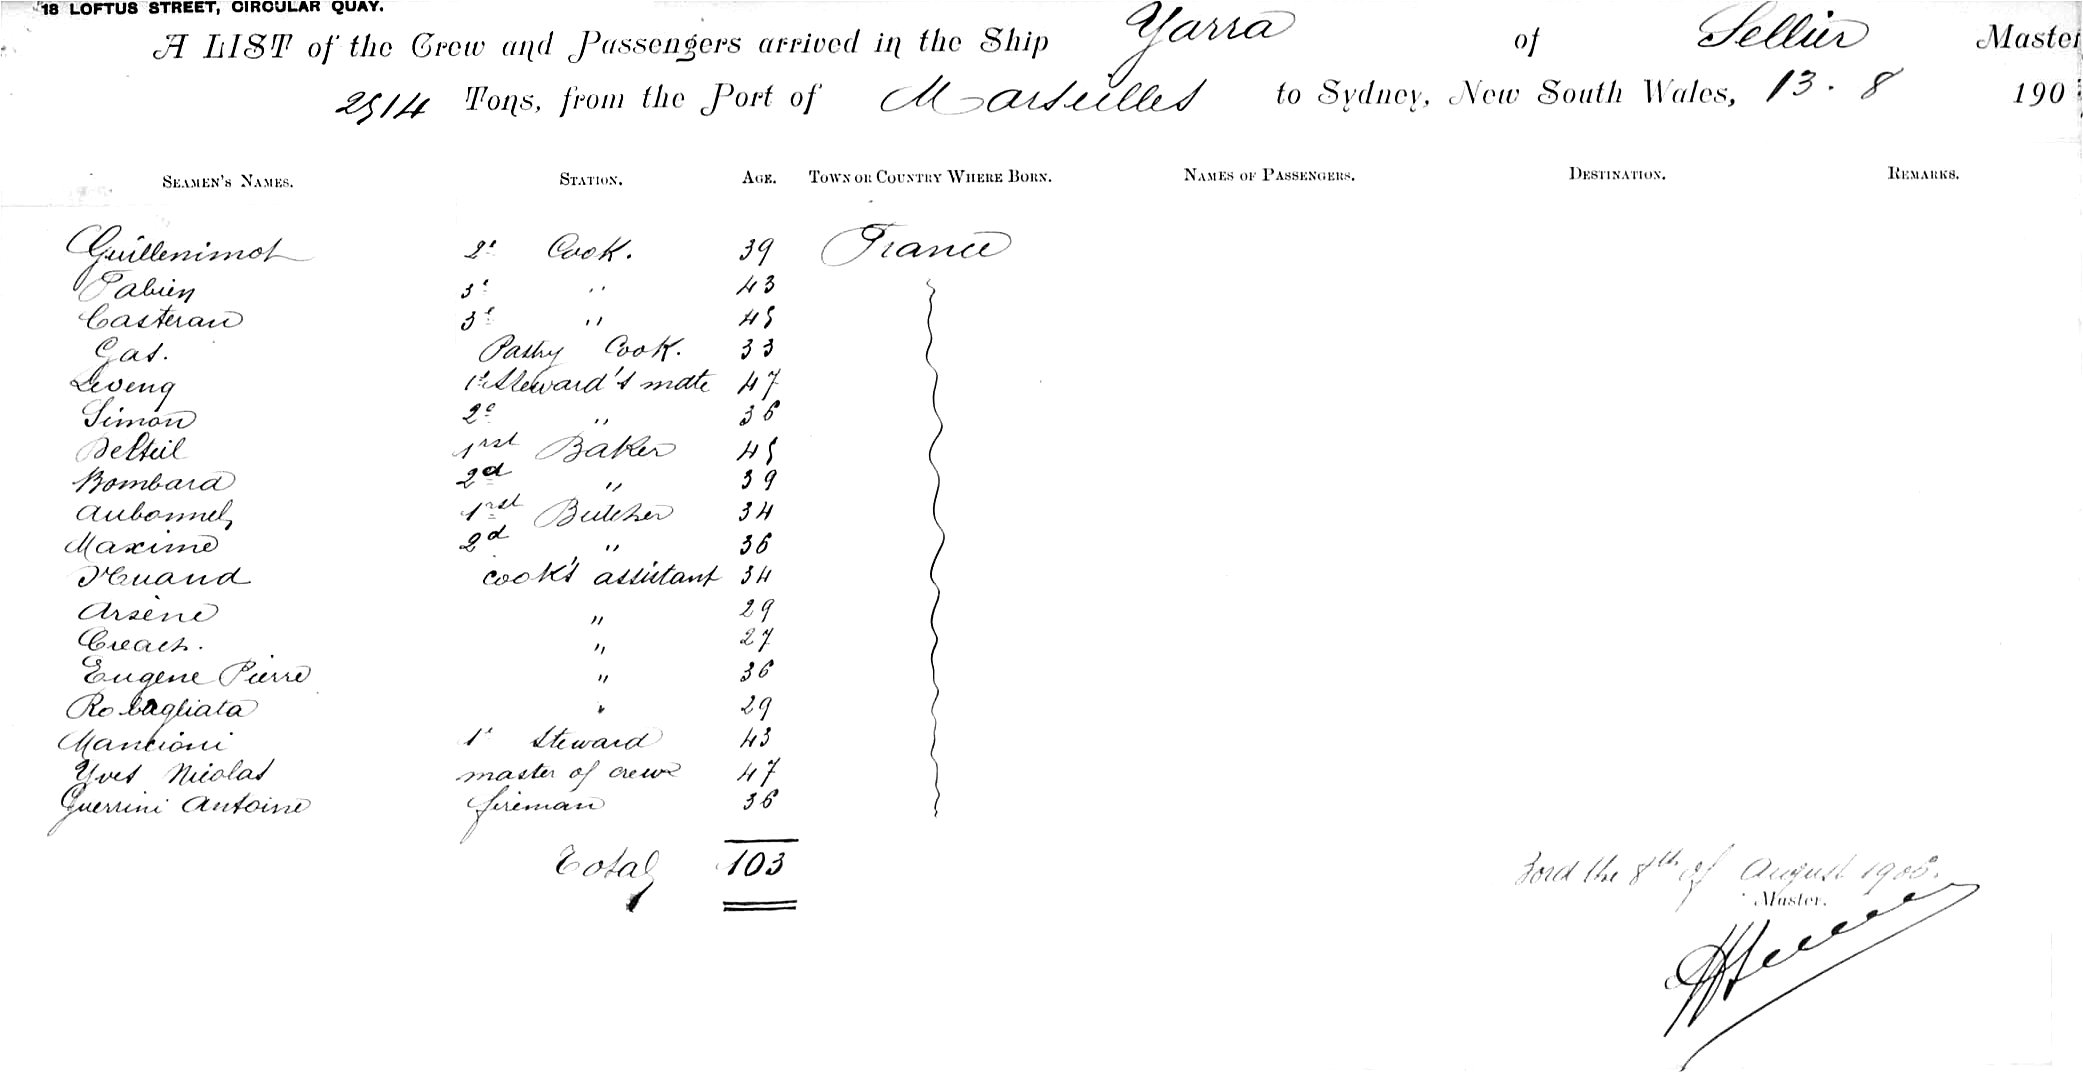 18 LOFTUS STREET, CIRCULAR QUAY.
A LIST of the Crew and Passengers arrived in the Ship Yarra of Sellier Master
2514 Tons, from the Port of Marseilles to Sydney, New South Wales, 13 . 8 190
SEAMEN'S NAMES. STATION. AGE. TOWN OR COUNTRY WHERE BORN. NAMES OF PASSENGERS. DESTINATION. REMARKS.
Guillenimot 2d Cook. 39 France
Fabien 3d " 43
Casteran 3d " 45
Gas. Pastry Cook. 33
Leveng 1st Steward's mate 47
Simon 2d " 36
Delteil 1rst Baker 45
Bombard 2d " 39
Aubonnel 1rst Butcher 34
Maxime 2d " 36
cook's assistant 34
Arsène " 29
Creach. " 27
Eugene Pierre " 36
Robagliata " 29
Mancioni 1st Steward 43
Yves Nicolas master of crew 47
Guerrini Antoine fireman 36
Total 103
the 8th of August 1905.
Master.